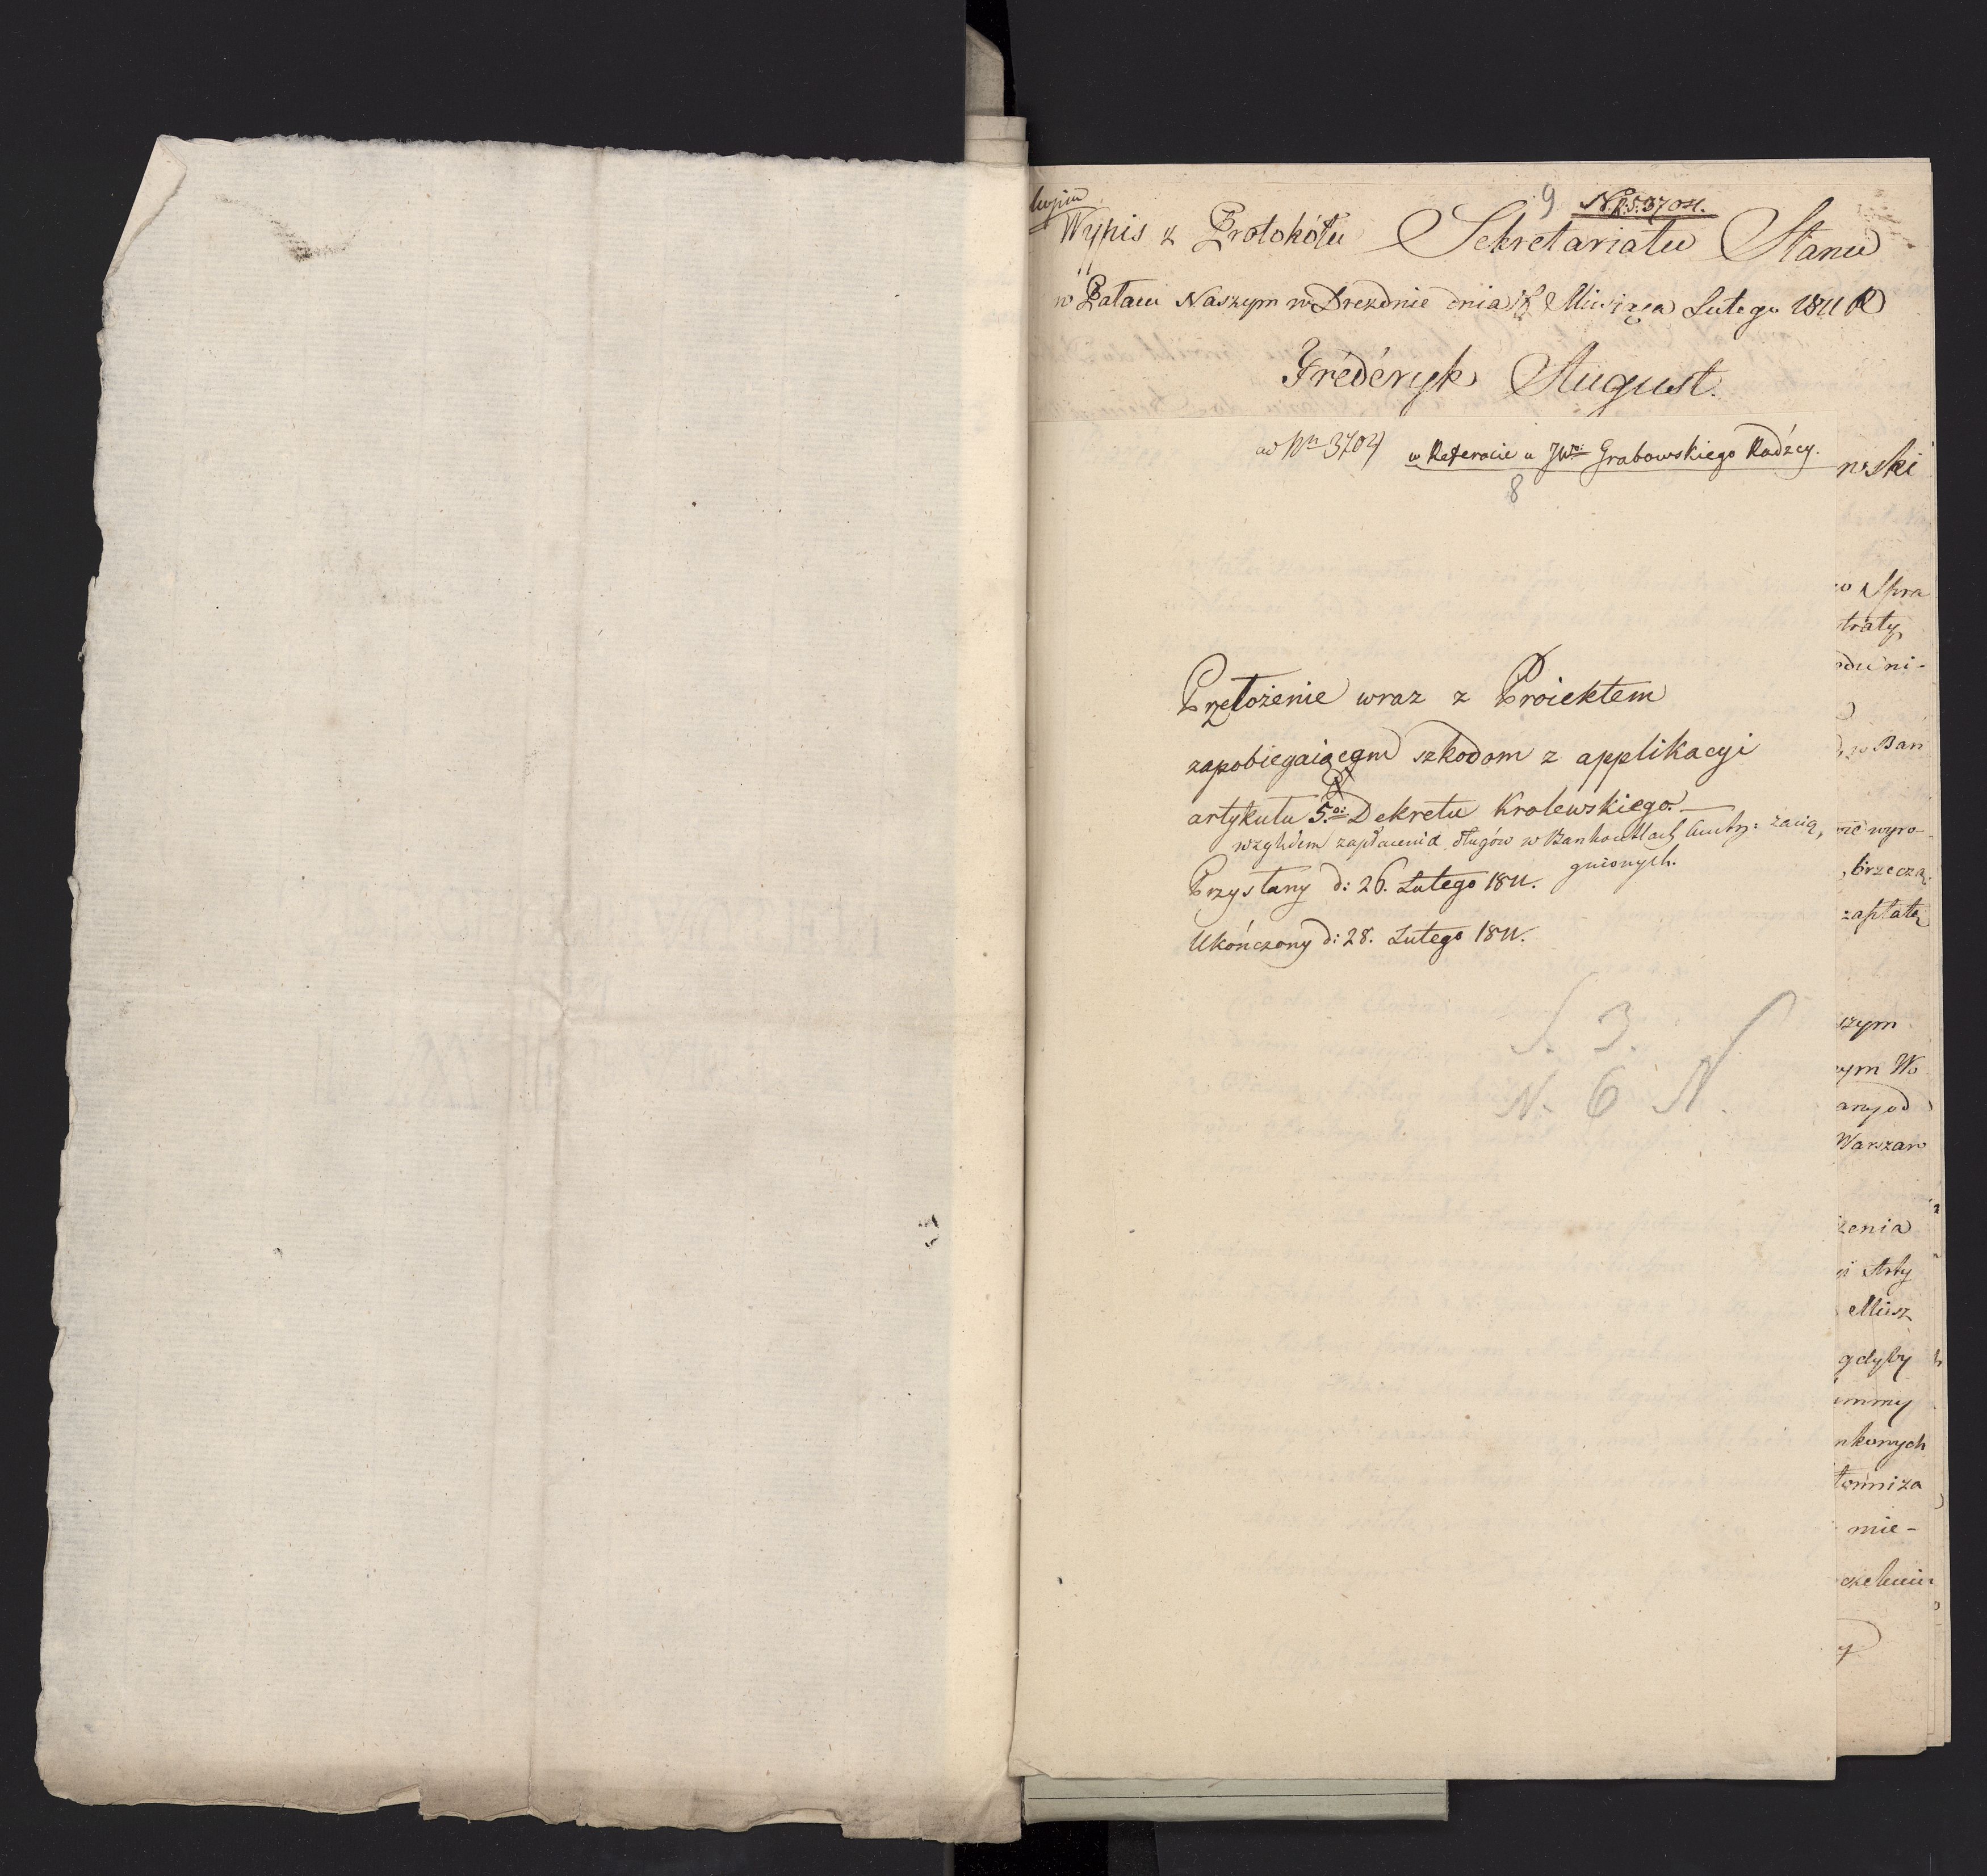 9 N. 3704.
Wypis z Protokółu Sekretariatu Stanu
w Pałacu Naszym w Dreznie dnia Miesiąca Lutego 1811 R
Fréderyk August.
ad Nrm 3704 w Referacie u JWo: Grabowskiego Radźcy.
8
wski
Przełożenie wraz z Proiektem
zapobiegaiącym szkodom z applikacyi
artykułu 5.o: Dekretu Krolewskiego.—
względem zapłacenia długów w Bankocetlach Austry: zacią,
gnionych.
Przysłany d: 26. Lutego 1811.
Ukończony d: 28. Lutego 1811.
S. 3.
N. 6 N.
Spra
traty,
du ni-
w Ban
wyro-
brzeczą
zapłatę
szym
ym Wo
any od
Warszaw
żenia
Arty
Miesz
gdyby
ummy
nkowych
mie-